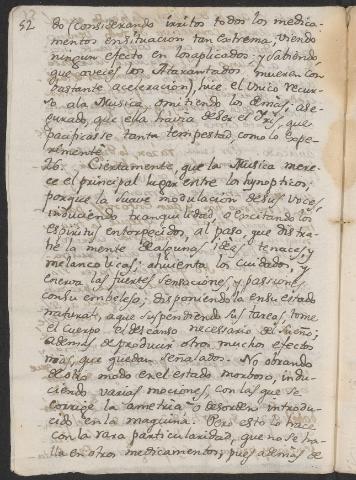 52
do (considerando irritos todos los medica-
mentos en situacion tan extrema, viendo
ningun efecto en los aplicados, y sabiendo,
que aveces los Atarantados mueran con
bastante aceleracion), hice el unico recur-
so ala Musica, omitiendo los demas, ase-
gurado, que ella havia de ser el Iris, que
pacificasse tanta tempestad, como lo expe-
rimente.
26. Ciertamente, que la Musica mere-
ce el principal lugar entre los hynopticos;
porque la suave modulacion de sus voces,
induciendo tranquilidad, o excitando los
espiritus entorpecidos, al paso, que distra-
he a la mente de algunas ideas tenaces, y
melancolicas; ahuienta los cuidados, y
enerva las fuertes sensaciones, y passiones
con su embeleso; disponiendola en su estado
natural, a que suspendiendo sus tareas, tome
el cuerpo el descanso necesario del sueño;
ademas de producir otros muchos efectos
mas, que quedan señalados. No obrando
de otro modo en el estado morboso, indu-
ciendo varias mociones, con las que se
corrige la ametria o desorden introdu-
cido en la maquina. Pero esto lo hace
con la rara particularidad, que no se ha-
lla en otros medicamentos; pues ademas de